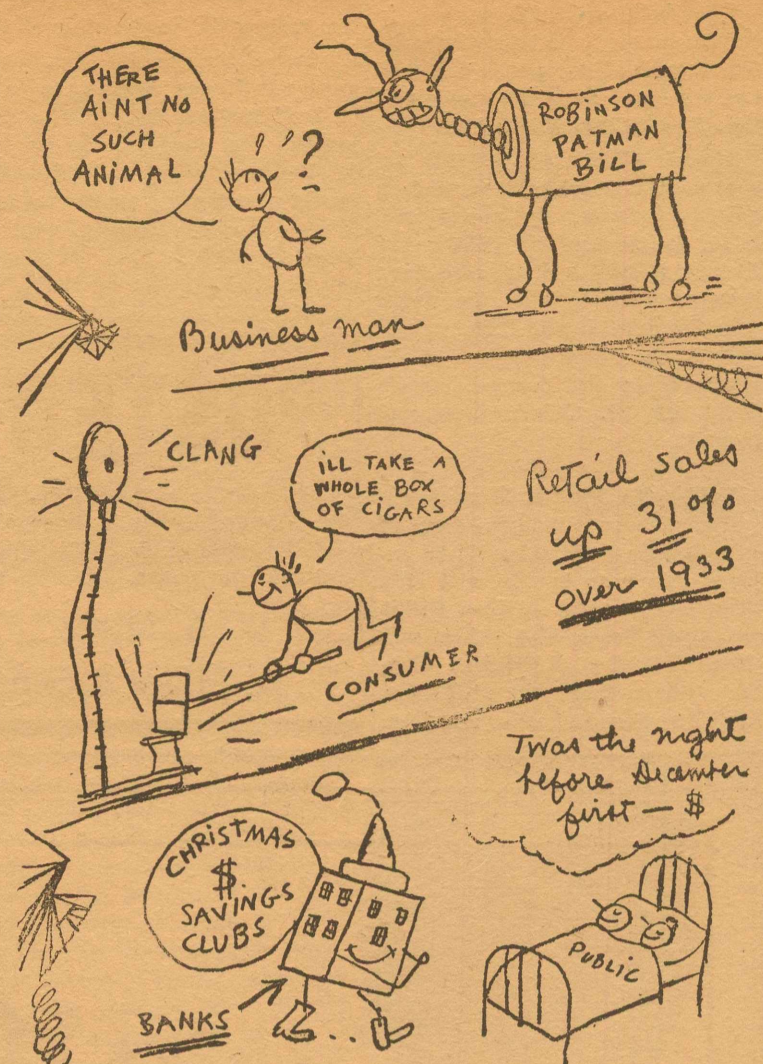 THERE
AINT NO
SUCH
ANIMAL
?
ROBINSON
PATMAN
BILL
Business man
CLANG
iLL TAKE A
WHOLE BOX
OF CIGARS
Retail sales
up 31%
over 1933
CONSUMER
Twas the night
before December
first — $
CHRISTMAS
$
SAVINGS
CLUBS
BANKS
PUBLIC